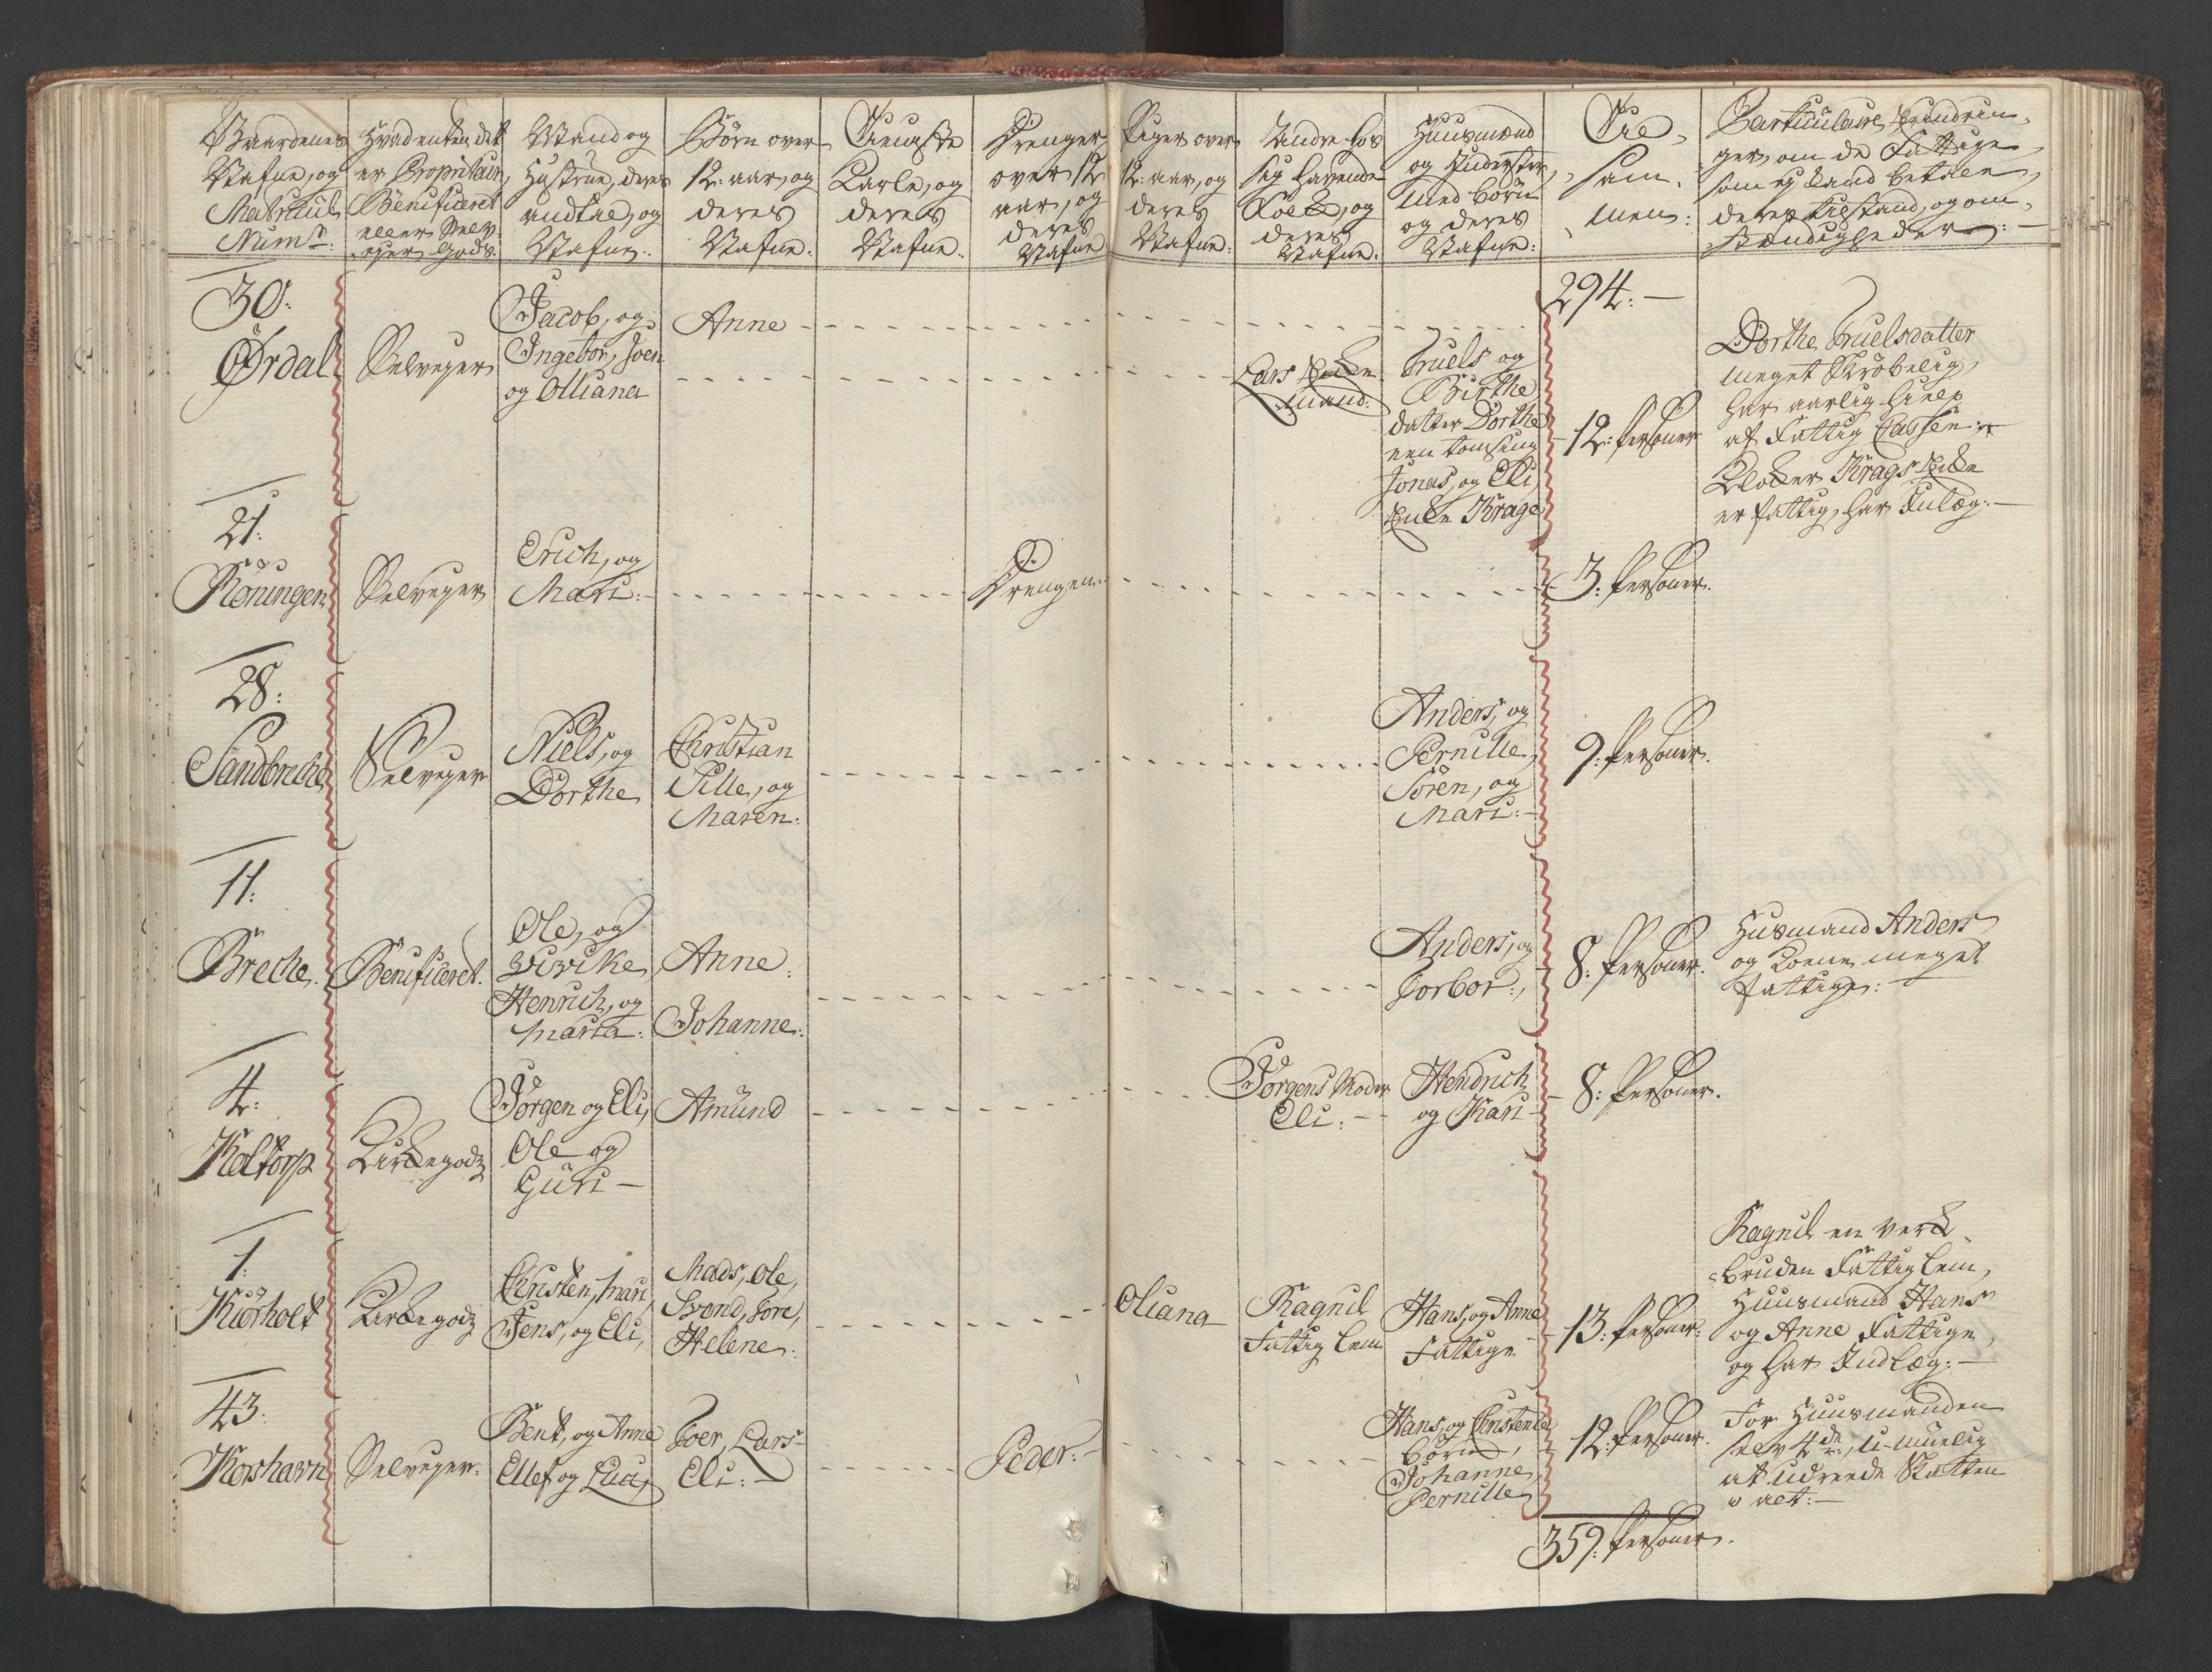 Gaardenes
Nafne, og
Matricul
Num.r:
Hvad enten det
er Propritair,
Benificeret
eller Selv-
ejer Gods.
Mand og
Hustrue, deres
andtal, og
Nafne.
Børn over
12: aar, og
deres
Nafne:
Tieneste
Karle, og
deres
Nafne.
Drenger
over 12
aar, og
deres
Nafne
Piger over
12: aar, og
deres
Nafne:
Andre hos
sig havende
Folk, og
deres
Nafne.
Huusmænd
og Inderster,
med børn
og deres
Nafne:
Til-
sam-
men:
Particulaire Erindrin-
ger, om de Fattige
som ej kand betale,
deres tilstand, og om-
stændigheder:
294:
30:
Ørdal
Selvejer
Jacob, og
Ingebor, Joen
og Olliana
Anne
Lars Enke
mand:
Truels og
Birthe
datter Dorthe
een tomsing
Jonas, og Eli
Enke Krage
12: Personer
Dorthe Truelsdatter
meget Skrøbelig,
har aarlig hielp
af Fattig Cassen:
Klokker Krags Enke
er fattig, har Inlæg:
21:
Röningen
Selvejer
Erich, og
Mari:
Drengen:
3: Personer.
28:
Sandbreche
Selvejer
Niels, og
Dorthe
Christian
Sille, og
Maren:
Anders, og
Pernille,
Sören, og
Mari:
9: Personer.
11:
Breche.
Benificeret.
Ole, og
Vivike
Henrich, og
Maria:
Anne:
Johanne:
Anders, og
Torbor:,
8: Personer.
Husmand Anders
og Kone meget
fattige:
4:
Holtorp
Kirkegodz
Jörgen og Eli,
Ole og
Guri
Amund
Jörgens Moder
Eli:
Hendrich
og Kari
8: Personer.
1:
Kiörholt
Kirkegodz
Christen, Mari,
Jens, og Eli,
Mads, Ole,
Svend, Tore,
Helene:
Oliana
Ragnil
Fattig Lem
Hans, og Anne
Fattige
13: Personer:
Ragnil en verk-
bruden Fattig Lem,
Huusmand Hans
og Anne Fattige,
og har Indlæg:
43:
Korshavn
Selvejer:
Bent, og Anne
Ellef og Luci
Joer, Lars
Eli:
Peder:
Hans, og Christence
børn,
Johanne,
Pernille
12: Personer.
For Huusmanden
selv 4de:, u-muelig
at udreede Skatten
af:
359: Personer.